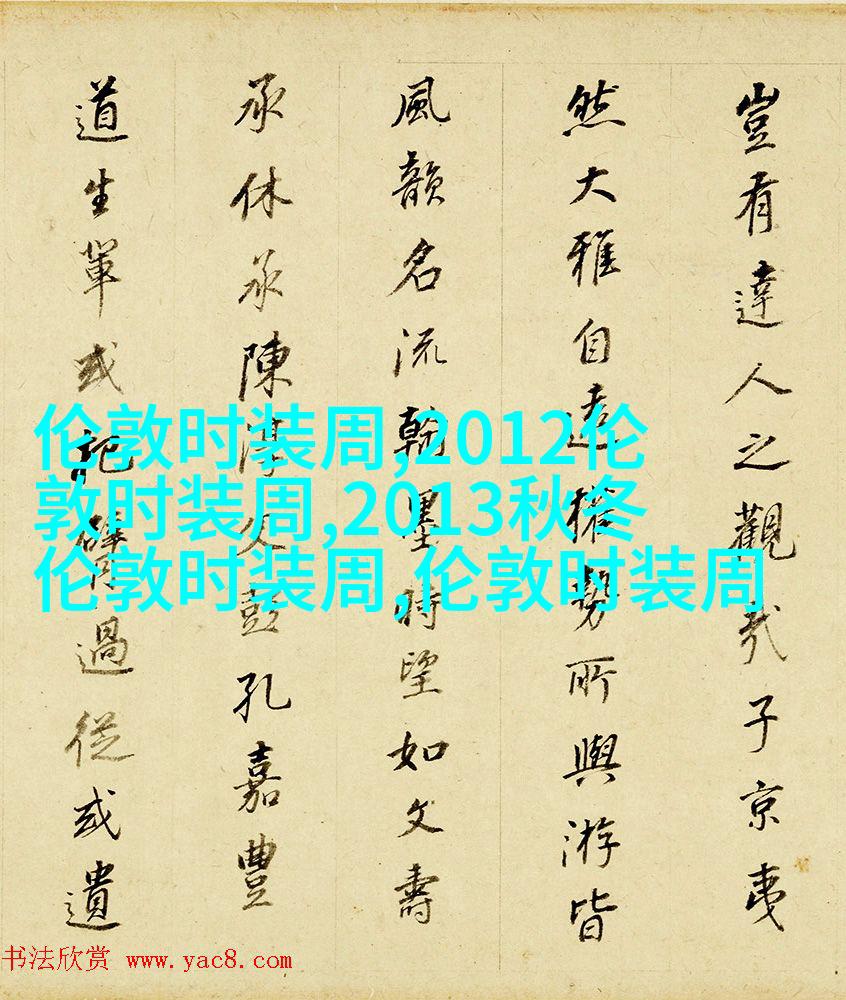 豈有達人之觀哉子京夷
然大雅自遠權勢所與游皆
風韻名流翰墨時望如文壽
承休承陳淳父彭孔嘉豐
道生輩或過從或遺
伦敦时装周,2012伦
敦时装周,2013秋冬
伦敦时装周,伦敦时装周
书法欣赏 www.yac8.com